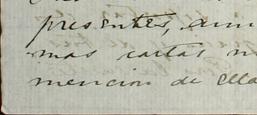 presentes, aun
mas cartas n
mencion de ella